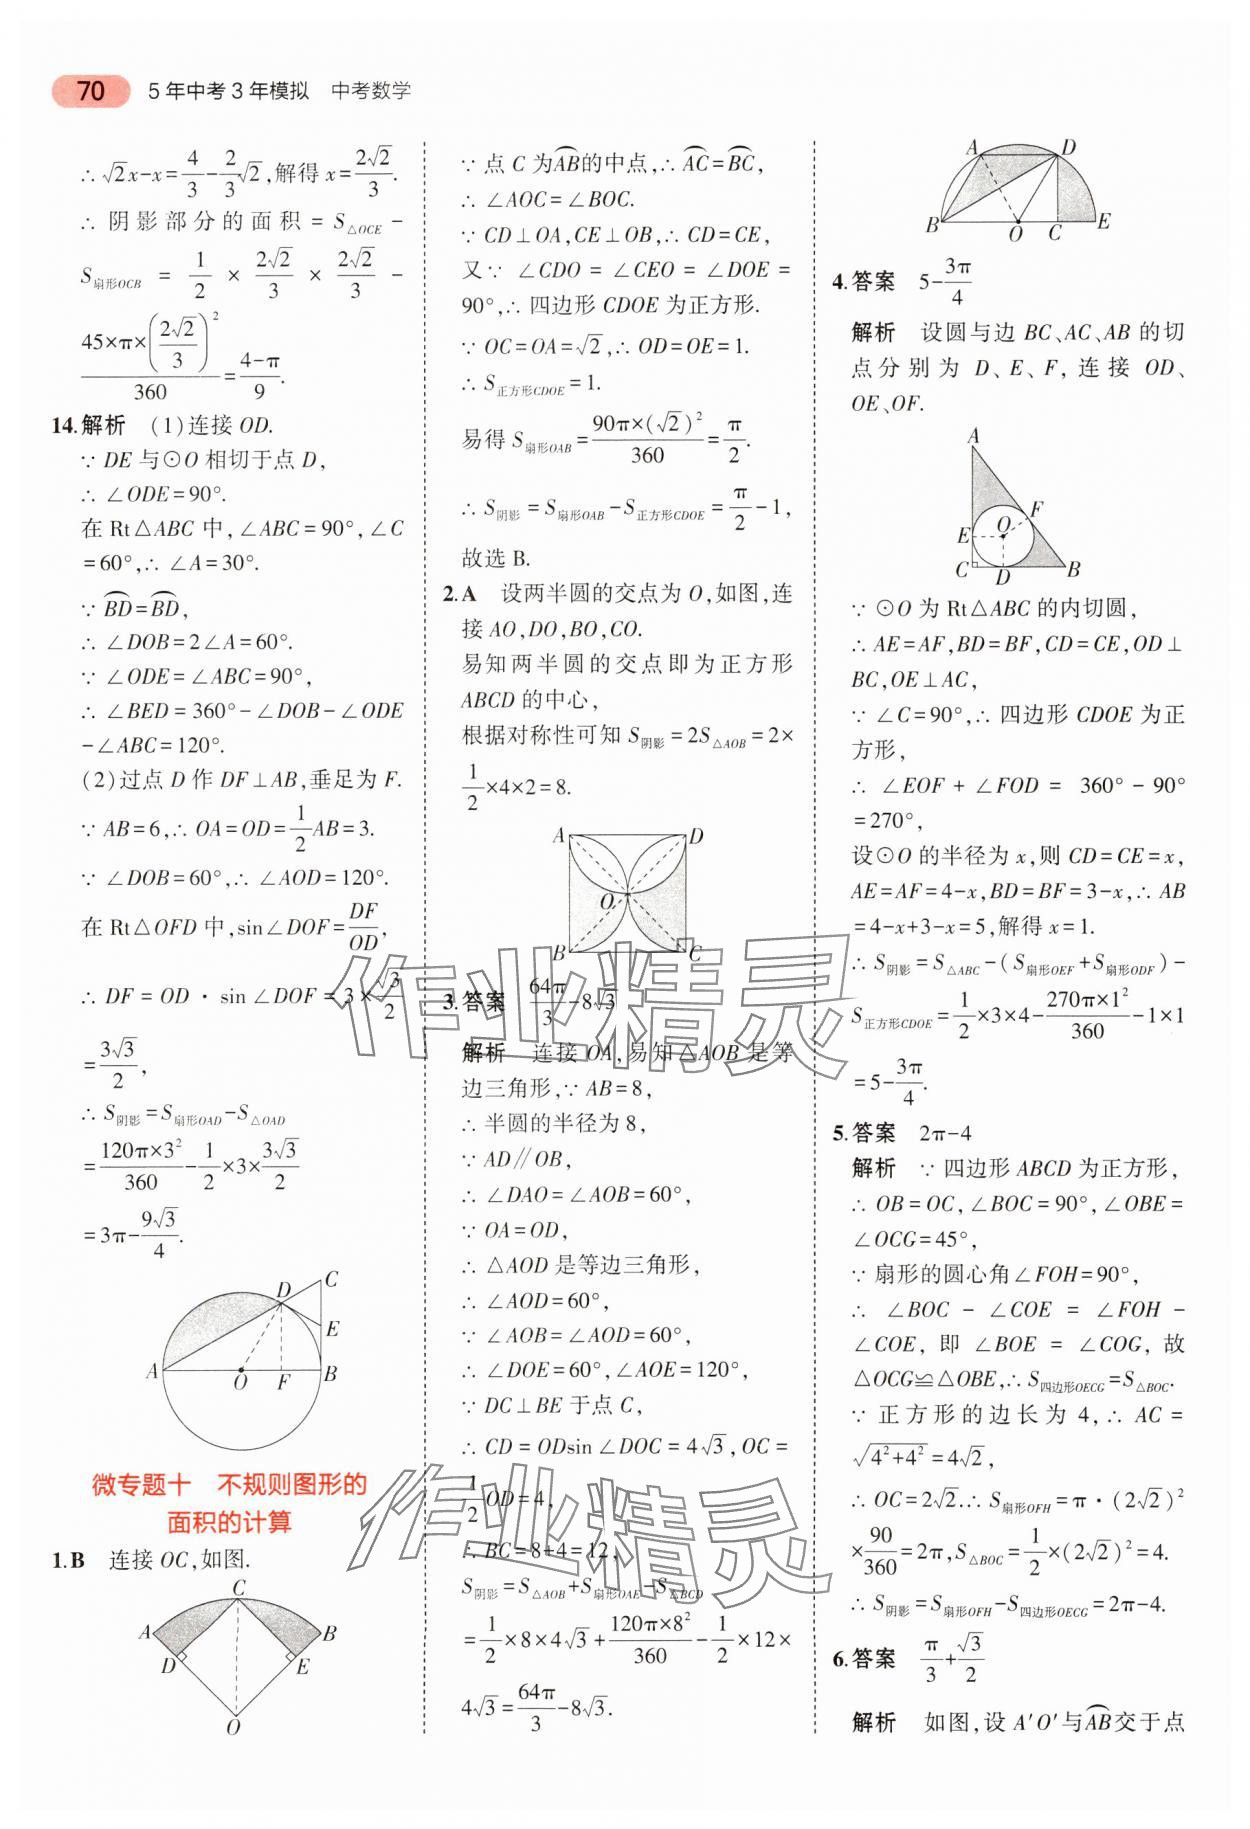 70 5年中考3年模拟 中考数学
∴ √2x-x=4/3-2/3√2,解得x=2√2/3.
∴ 阴影部分的面积=S△OCE-
S扇形OCB = 1/2 × 2√2/3 × 2√2/3 -
45×π×(2√2/3)²/360=4-π/9.
14.解析 (1)连接OD.
∵ DE与⊙O相切于点D,
∴ ∠ODE=90°.
在Rt△ABC中,∠ABC=90°,∠C
=60°,∴ ∠A=30°.
∵ BD⌒=BD⌒,
∴ ∠DOB=2∠A=60°.
∵ ∠ODE=∠ABC=90°,
∴ ∠BED=360°-∠DOB-∠ODE
-∠ABC=120°.
(2)过点D作DF⊥AB,垂足为F.
∵ AB=6,∴ OA=OD=1/2AB=3.
∵ ∠DOB=60°,∴ ∠AOD=120°.
在Rt△OFD中,sin∠DOF=DF/OD,
∴ DF=OD·sin∠DOF=3×√3/2
=3√3/2,
∴ S阴影=S扇形OAD-S△OAD
=120π×3²/360-1/2×3×3√3/2
=3π-9√3/4.
C
D
E
A
O
F
B
微专题十 不规则图形的
面积的计算
1.B 连接OC,如图.
C
A
B
D
E
O
∵ 点C为AB⌒的中点,∴ AC⌒=BC⌒,
∴ ∠AOC=∠BOC.
∵ CD⊥OA,CE⊥OB,∴ CD=CE,
又∵ ∠CDO=∠CEO=∠DOE=
90°,∴ 四边形CDOE为正方形.
∵ OC=OA=√2,∴ OD=OE=1.
∴ S正方形CDOE=1.
易得S扇形OAB=90π×(√2)²/360=π/2.
∴ S阴影=S扇形OAB-S正方形CDOE=π/2-1,
故选B.
2.A 设两半圆的交点为O,如图,连
接AO,DO,BO,CO.
易知两半圆的交点即为正方形
ABCD的中心,
根据对称性可知S阴影=2S△AOB=2×
1/2×4×2=8.
A
D
O
B
C
3.答案 64π/3-8√3
解析 连接OA,易知△AOB是等
边三角形,∵ AB=8,
∴ 半圆的半径为8,
∵ AD∥OB,
∴ ∠DAO=∠AOB=60°,
∵ OA=OD,
∴ △AOD是等边三角形,
∴ ∠AOD=60°,
∵ ∠AOB=∠AOD=60°,
∴ ∠DOE=60°,∠AOE=120°,
∵ DC⊥BE于点C,
∴ CD=ODsin∠DOC=4√3,OC=
1/2OD=4,
∴ BC=8+4=12,
S阴影=S△AOB+S扇形OAE-S△BCD
=1/2×8×4√3+120π×8²/360-1/2×12×
4√3=64π/3-8√3.
A
D
B
O
C
E
4.答案 5-3π/4
解析 设圆与边BC、AC、AB的切
点分别为D、E、F,连接OD、
OE、OF.
A
F
E
O
C
D
B
∵ ⊙O为Rt△ABC的内切圆,
∴ AE=AF,BD=BF,CD=CE,OD⊥
BC,OE⊥AC,
∵ ∠C=90°,∴ 四边形CDOE为正
方形,
∴ ∠EOF+∠FOD=360°-90°
=270°,
设⊙O的半径为x,则CD=CE=x,
AE=AF=4-x,BD=BF=3-x,∴ AB
=4-x+3-x=5,解得x=1.
∴ S阴影=S△ABC-(S扇形OEF+S扇形ODF)-
S正方形CDOE=1/2×3×4-270π×1²/360-1×1
=5-3π/4.
5.答案 2π-4
解析 ∵ 四边形ABCD为正方形,
∴ OB=OC,∠BOC=90°,∠OBE=
∠OCG=45°,
∵ 扇形的圆心角∠FOH=90°,
∴ ∠BOC-∠COE=∠FOH-
∠COE,即∠BOE=∠COG,故
△OCG≌△OBE,∴ S四边形OECG=S△BOC.
∵ 正方形的边长为4,∴ AC=
√(4²+4²)=4√2,
∴ OC=2√2.∴ S扇形OFH=π·(2√2)²
×90/360=2π,S△BOC=1/2×(2√2)²=4.
∴ S阴影=S扇形OFH-S四边形OECG=2π-4.
6.答案 π/3+√3/2
解析 如图,设A′O′与AB⌒交于点
作业精灵
作业精灵